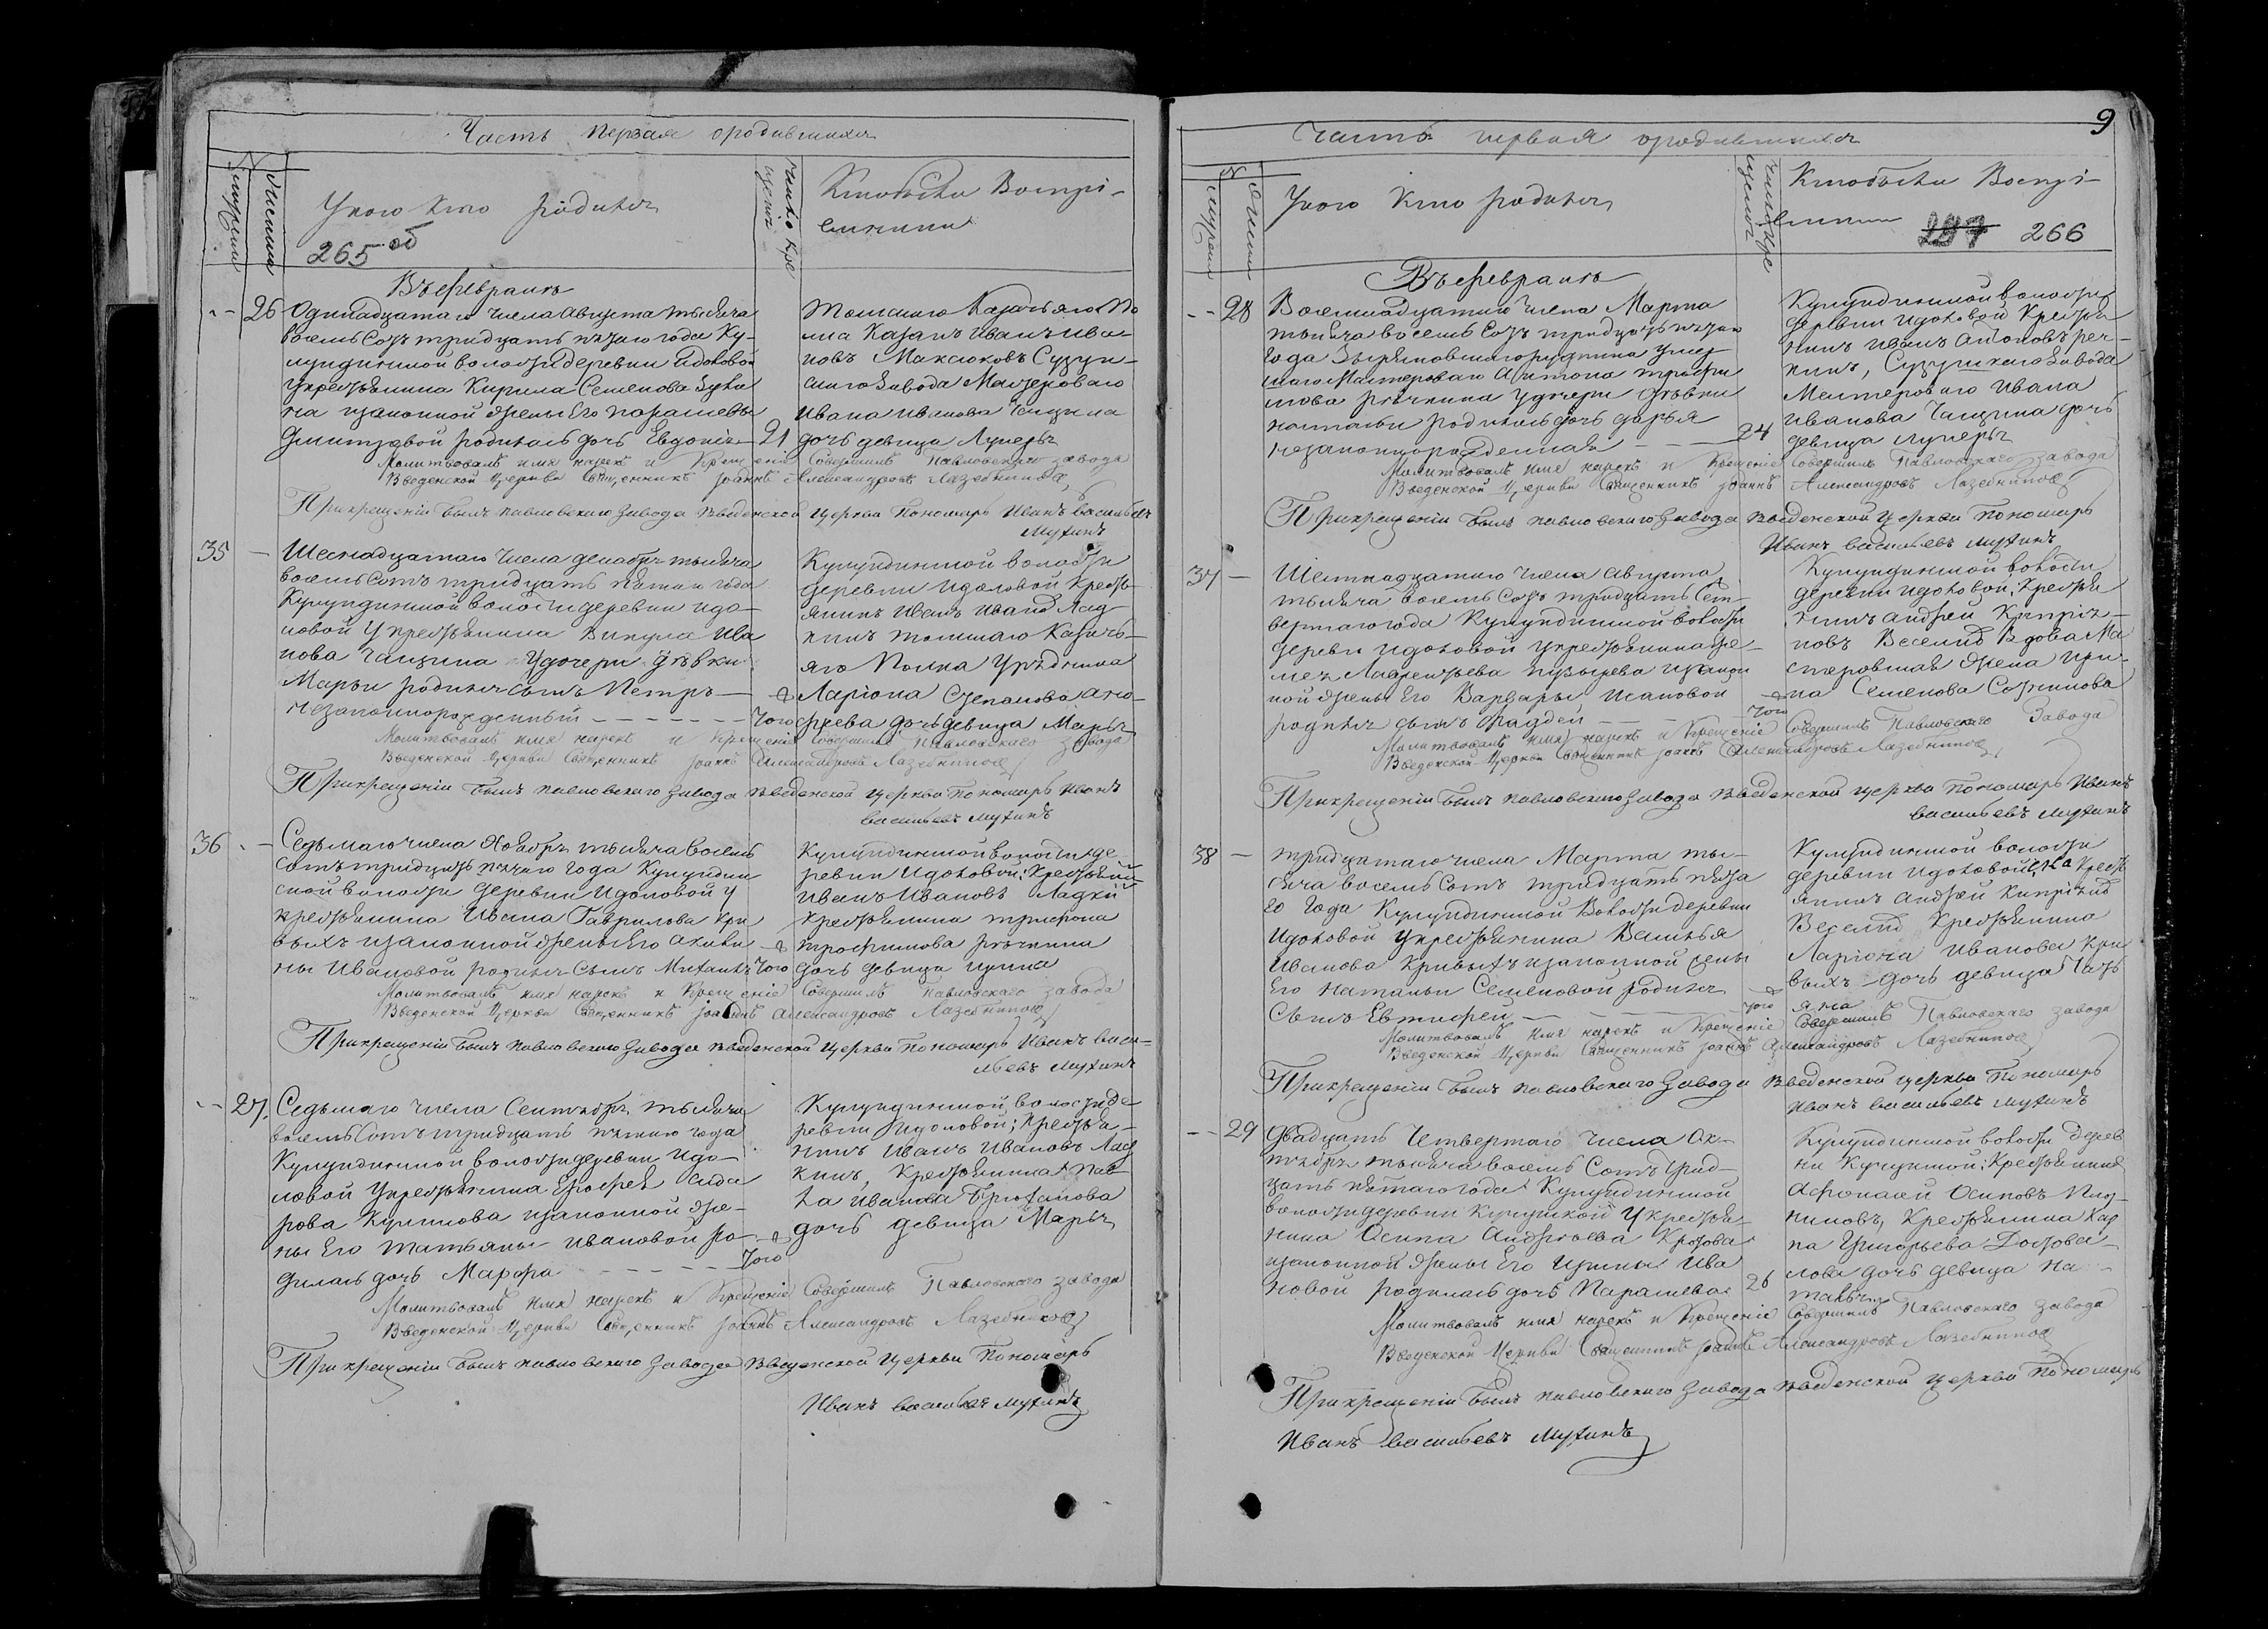 Часть первая о родившихся
Числи
У кого кто родился
число кре
щенія
Кто были Воспрі-
емники
265 об
Въ феврале
26 Одинадцатаго числа Августа тысяча
восемь Сотъ тридцать пятаго года Ку-
лундинской волости деревни Идоловой
у крестьянина Кирила Семенова
на изаконной жены Его Парасковьи
Дмитревой родилась дочь Евдокія 21
Томскаго Казачьяго По
лка Казакъ Иванъ Ива-
новъ Максюковъ Сузун-
скаго завода Мастероваго
Ивана Иванова Чанцина
дочь девица Лукерья
Молитвовалъ имя нарекъ и Крещеніе Совершилъ Павловскаго завода
Введенской Церкви Священникъ Іоаннъ Александровъ Лазебниковъ
При крещеніи былъ павловскаго завода введенской церкви Пономарь Иванъ васильевъ
Мухинъ
35 Шеснадцатаго числа декабря тысяча
восемь Сотъ тридцать пятаго года
Кулундинской волости деревни идо-
ловой у крестьянина Викула Ива
нова Чанцина у дочери девки
Марьи родился сынъ Петръ
незаконнорожденный того
Кулундинской волости
деревни Идоловой Кресть-
янинъ Иванъ Ивановъ Лад-
кинъ томскаго Казачь-
яго Полка Урядника
Ларіона Степанова
дочь девица Марья
Молитвовалъ имя нарекъ и Крещеніе Совершилъ Павловскаго завода
Введенской Церкви Священникъ Іоаннъ Александровъ Лазебниковъ
При крещеніи былъ павловскаго завода введенской церкви Пономарь Иванъ
васильевъ мухинъ
36 Седьмаго числа Ноября тысяча восемь
Сотъ тридцать пятаго года Кулундин
ской волости деревни Идоловой у
крестьянина Ивана Гаврилова Кри
выхъ изаконной жены Его Акили
ны Ивановой родился Сынъ Михаилъ того
Кулундинской волости де-
ревни Идоловой Крестьянинъ
Иванъ Ивановъ Ладкинъ
крестьянина трифона
трофимова речкина
дочь девица ирина
Молитвовалъ имя нарекъ и Крещеніе Совершилъ Павловскаго завода
Введенской Церкви Священникъ Іоаннъ Александровъ Лазебниковъ
При крещеніи былъ павловскаго завода введенской церкви Пономарь Иванъ васи-
льевъ мухинъ
27 Седьмаго числа Сентября тысяча
восемь Сотъ тридцать пятаго года
Кулундинской волости деревни Идо-
ловой у крестьянина Ерофея Сидо
рова Куликова изаконной же-
ны Его татьяны Ивановой ро-
дилась дочь Марфа того
Кулундинской волости де
ревни Идоловой; Крестья-
нинъ Иванъ Ивановъ Лад
кинъ, Крестьянина Пав-
ла Иванова Брюханова
дочь девица Марья
Молитвовалъ имя нарекъ и Крещеніе Совершилъ Павловскаго завода
Введенской Церкви Священникъ Іоаннъ Александровъ Лазебниковъ
При крещеніи былъ павловскаго завода введенской церкви Пономарь
Иванъ васильевъ мухинъ
9
Часть первая о родившихся
У кого кто родился
Кто были Воспрі-
емники
266
Въ феврале
28 Восемнадцатаго числа Марта
тысяча восемь Сотъ тридцать пятаго
года Зыряновскаго рудника умер
шаго Мастероваго Антона трофи
мова речкина у дочери девки
натальи родилась дочь дарья
незаконнорожденная 24
Кулундинской волости
деревни идоловой Крестья
нинъ Иванъ Антоновъ реч-
кинъ, Сузунскаго завода
Мастероваго Ивана
Иванова Чанцина дочь
девица лукерья
Молитвовалъ имя нарекъ и Крещеніе Совершилъ Павловскаго завода
Введенской Церкви Священникъ Іоаннъ Александровъ Лазебниковъ
При крещеніи былъ павловскаго завода введенской церкви Пономарь
Иванъ васильевъ мухинъ
37 Шестнадцатаго числа Августа
тысяча восемь Сотъ тридцать Чет-
вертаго года Кулундинской волости
деревни идоловой у крестьянина
Лаврентьева изакон
ной жены Его Варвары Исаковой
родился сынъ Фадей того
Кулундинской волости
деревни идоловой; Крестья
нинъ андрей Купріа-
новъ Веселко Вдова Ма
стеровская жена ири-
на Семенова
Молитвовалъ имя нарекъ и Крещеніе Совершилъ Павловскаго Завода
Введенской Церкви Священникъ Іоаннъ Александровъ Лазебниковъ
При крещеніи былъ павловскаго завода введенской церкви пономарь Иванъ
васильевъ мухинъ
38 тридцатаго числа Марта ты-
сяча восемь Сотъ тридцать пята
го года Кулундинской Волости деревни
Идоловой у крестьянина Василья
Иванова Кривыхъ изаконной жены
Его Натальи Семеновой родился
Сынъ Евтифей того
Кулундинской волости
деревни идоловой Кресть
янинъ андрей
Крестьянина
Ларіона Иванова Кри
выхъ дочь девица Тать
яна
Молитвовалъ имя нарекъ и Крещеніе Совершилъ Павловскаго завода
Введенской Церкви Священникъ Іоаннъ Александровъ Лазебниковъ
При крещеніи былъ павловскаго завода введенской церкви Пономарь
Иванъ васильевъ мухинъ
29 Двадцать Четвертаго числа Ок-
тября тысяча восемь Сотъ трид-
цать пятаго года Кулундинской
волости деревни Кучукской у крестья-
нина Осипа Андреева
изаконной жены Его Ирины Ива
новой родилась дочь Парасковья 26
Кулундинской волости дерев
ни Кучукской; Крестьянинъ
Афонасей Осиповъ
Крестьянина Кар
па Григорьева
дочь девица На-
талья
Молитвовалъ имя нарекъ и Крещеніе Совершилъ Павловскаго завода
Введенской Церкви Священникъ Іоаннъ Александровъ Лазебниковъ
При крещеніи былъ павловскаго завода введенской церкви Пономарь
Иванъ васильевъ мухинъ